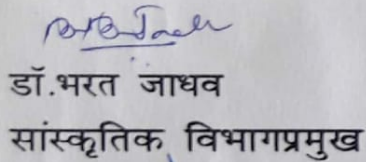 डॉ.भरत जाधव
सांस्कृतिक विभागप्रमुख